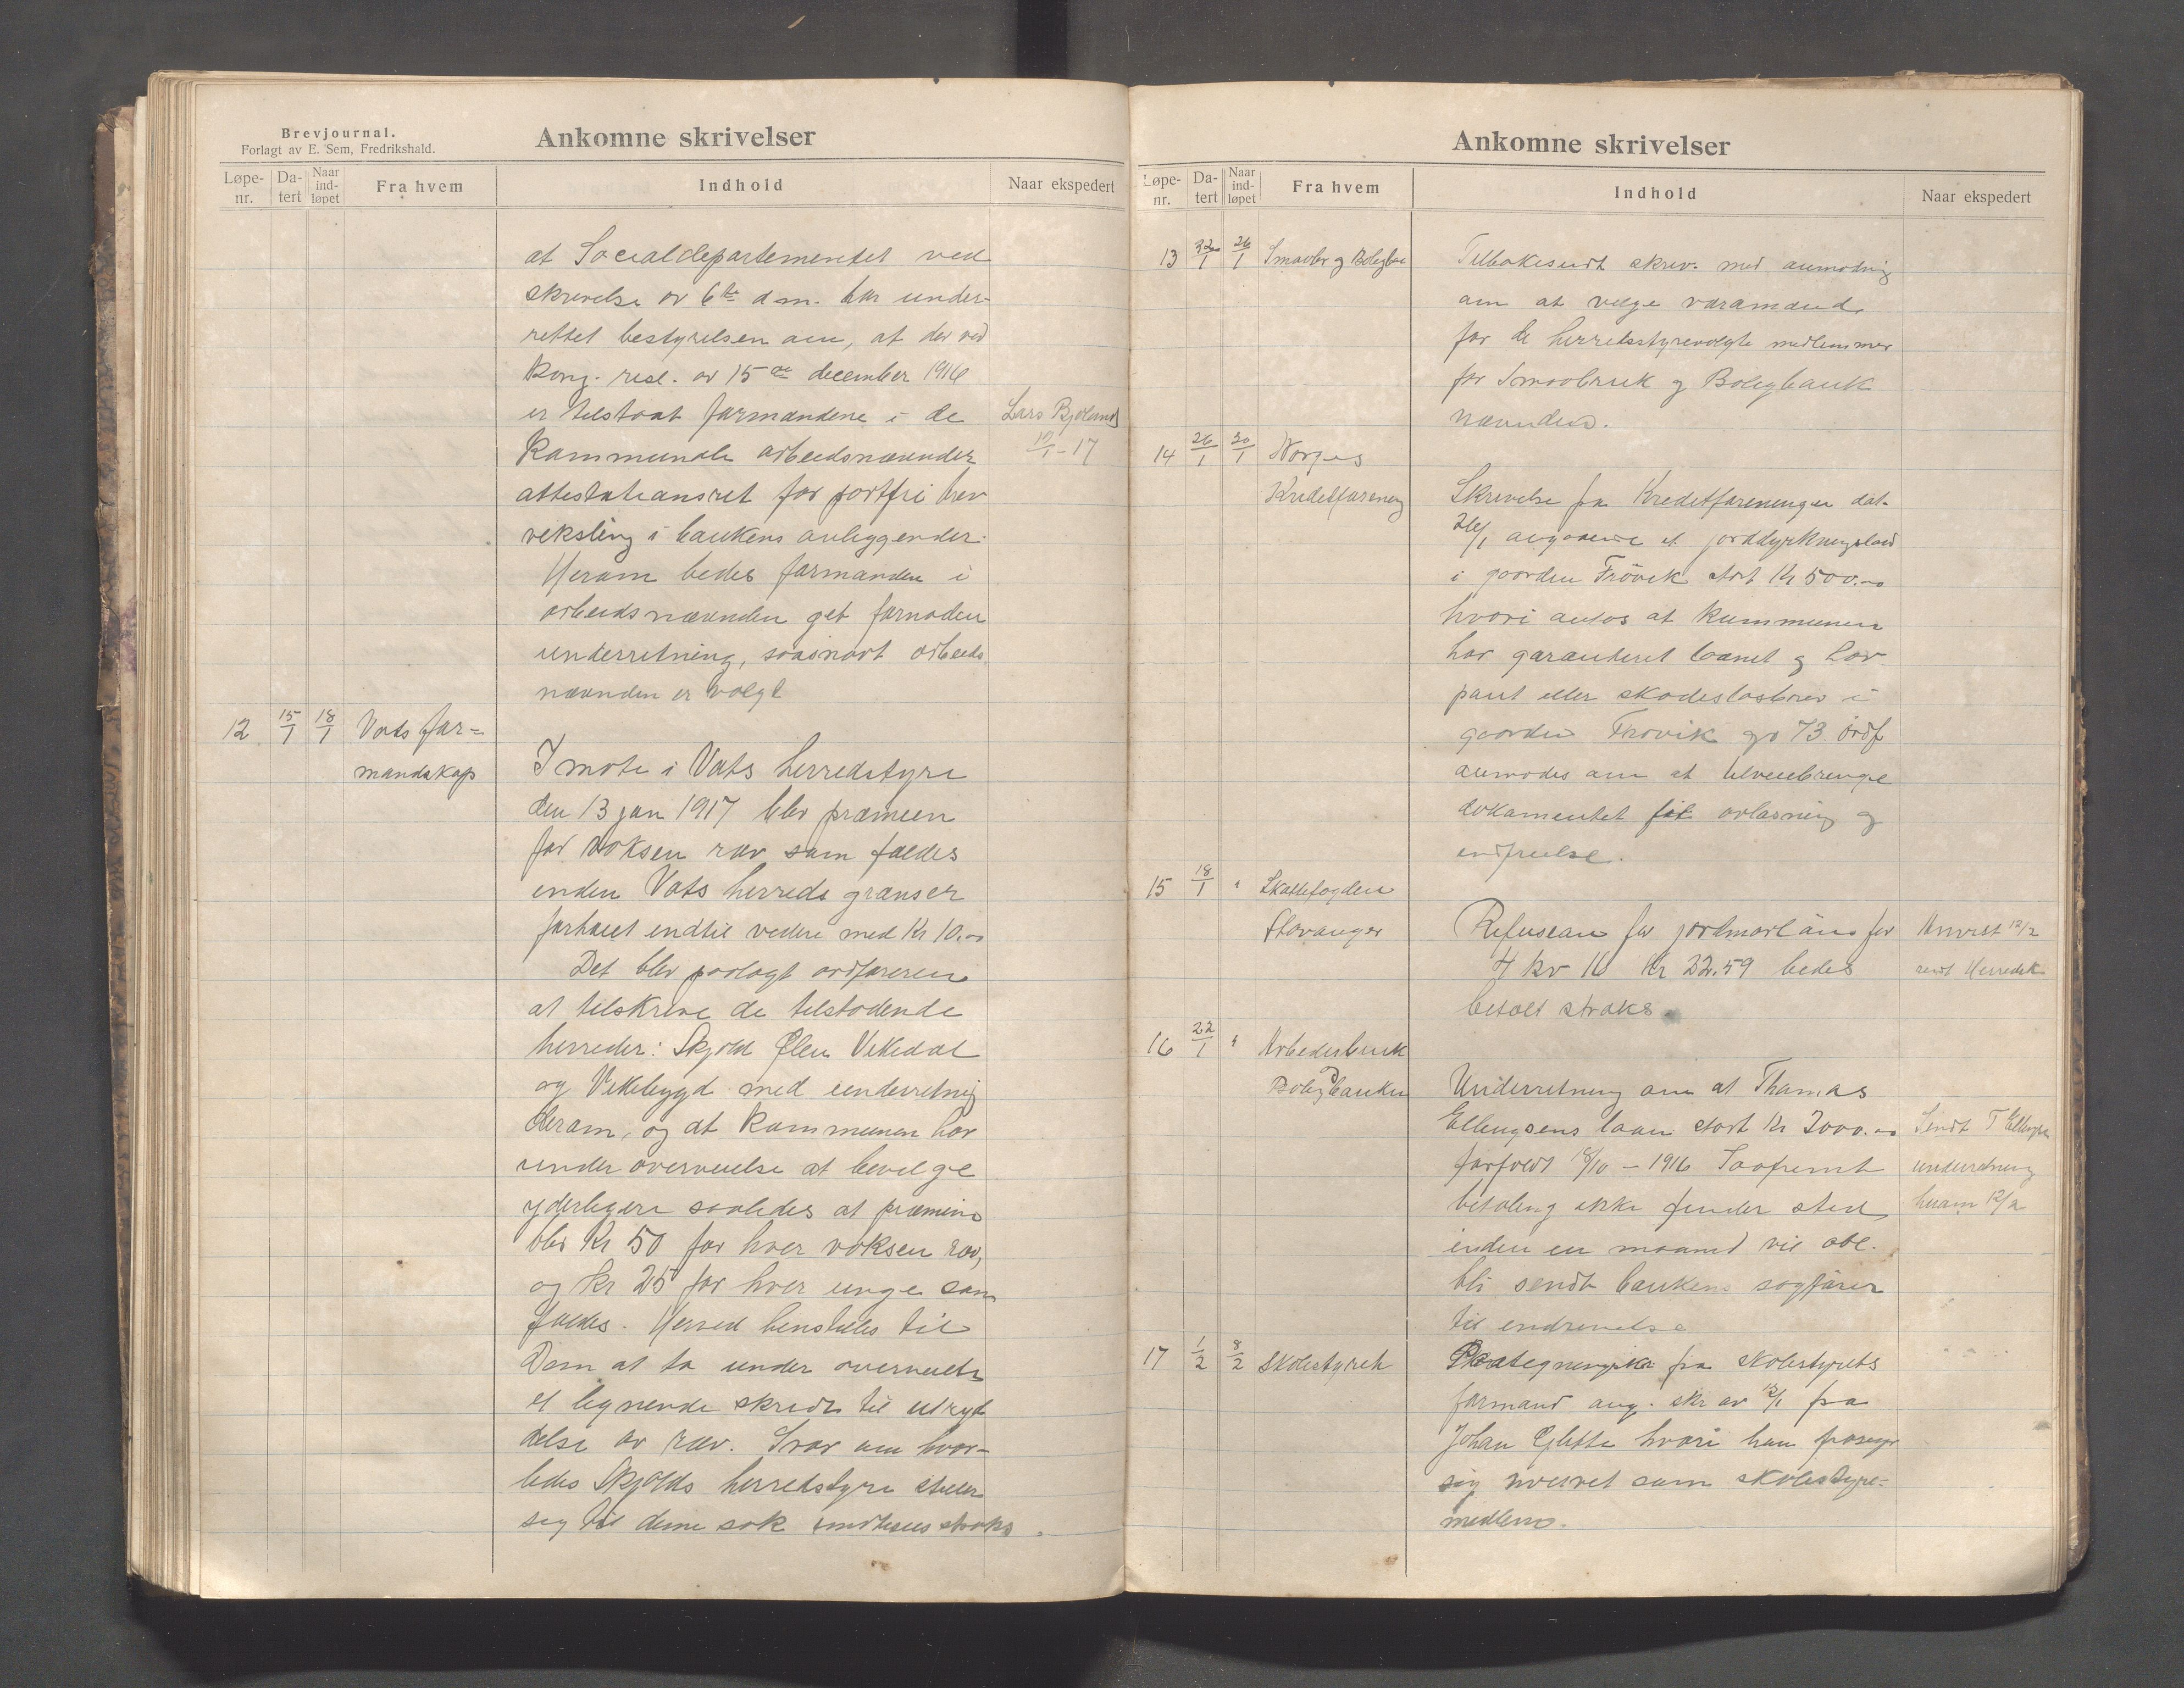 Brevjournal.
Forlagt av E. Sem, Fredrikshald.
Ankomne skrivelser
Løpe-nr. Da-tert Naar ind-løpet Fra hvem Indhold Naar ekspedert
at Socialdepartementet ved
skrivelse av 6te d m. har under-
rettet bestyrelsen om, at der ved
kong. resl. av 15de december 1916
er tilstaat formændene i de Lars Bjeland
kommunale arbeidsnævnder 19/1-17
attestationsret for portfri brev
veksling i bankens anliggender.
Herom bedes formanden i
arbeidsnævnden git fornøden
underretning, saasnart arbeids
nævnden er valgt
12 15/1 18/1 Vats for-
mandskap I møte i Vats herredstyre
den 13 jan 1917 blev præmien
for voksen ræv som fældes
inden Vats herreds grænser
forhøiet indtil videre med Kr 10.00
Det blev paalagt ordføreren
at tilskrive de tilstødende
herreder: Skjold Ølen Vikedal
og Vikebygd med underretnig
derom, og at kommunen har
under overveielse at bevilge
yderligere saaledes at præmien
blir Kr 50 for hver voksen ræv,
og kr 25 for hver unge som
fældes. Herved henstilles til
Dem at ta under overveielse
et lignende skridt til utryd
delse av ræv. Svar om hvor-
ledes Skjolds herredstyre stiller
sig til denne sak imøtesees straks.
Ankomne skrivelser
Løpe-nr. Da-tert Naar ind-løpet Fra hvem Indhold Naar ekspedert
13 22/1 26/1 Smaabr og Boligban Tilbakesendt skriv. med anmodnig
om at vælge varamænd
for de herredsstyrevalgte medlemmer
for Smaabruk og Boligbank
nævnden.
14 26/1 30/1 Norges
Kreditforening Skrivelse fra Kreditforeningen dat.
26/1 angaaende et jorddyrkningslaan
i gaarden Frövik stort Kr 500.00
hvori anføs at kommunen
har garanteret laanet og har
pant eller skadesløsbrev i
gaarden Frovik gr 73. Ordf
anmodes om at tilveiebringe
dokumentet til avlæsning og
indfrielse.
15 18/1 " Skattefogden
Stavanger Refusion for jordmorløn for Anvist 12/2
4 kv 16 Kr 22.59 bedes sendt Herredsk
betalt straks.
16 22/1 " Arbederbruk
Boligbanken Underretning om at Thomas
Ellingsens laan stort Kr 2000.00 Sendt T Ellingsen
forfaldt 18/10 - 1916 Saafremt underretning
betaling ikke finder sted herom 12/2
inden en maaned vil obl.
bli sendt bankens sagfører
til inddrivelse
17 1/2 8/2 Skolestyret Paategningsskr fra skolestyrets
formand ang. skr av 12/1 fra
Johan Glette hvori han frasiger
sig hvervet som skolestyre-
medlem.